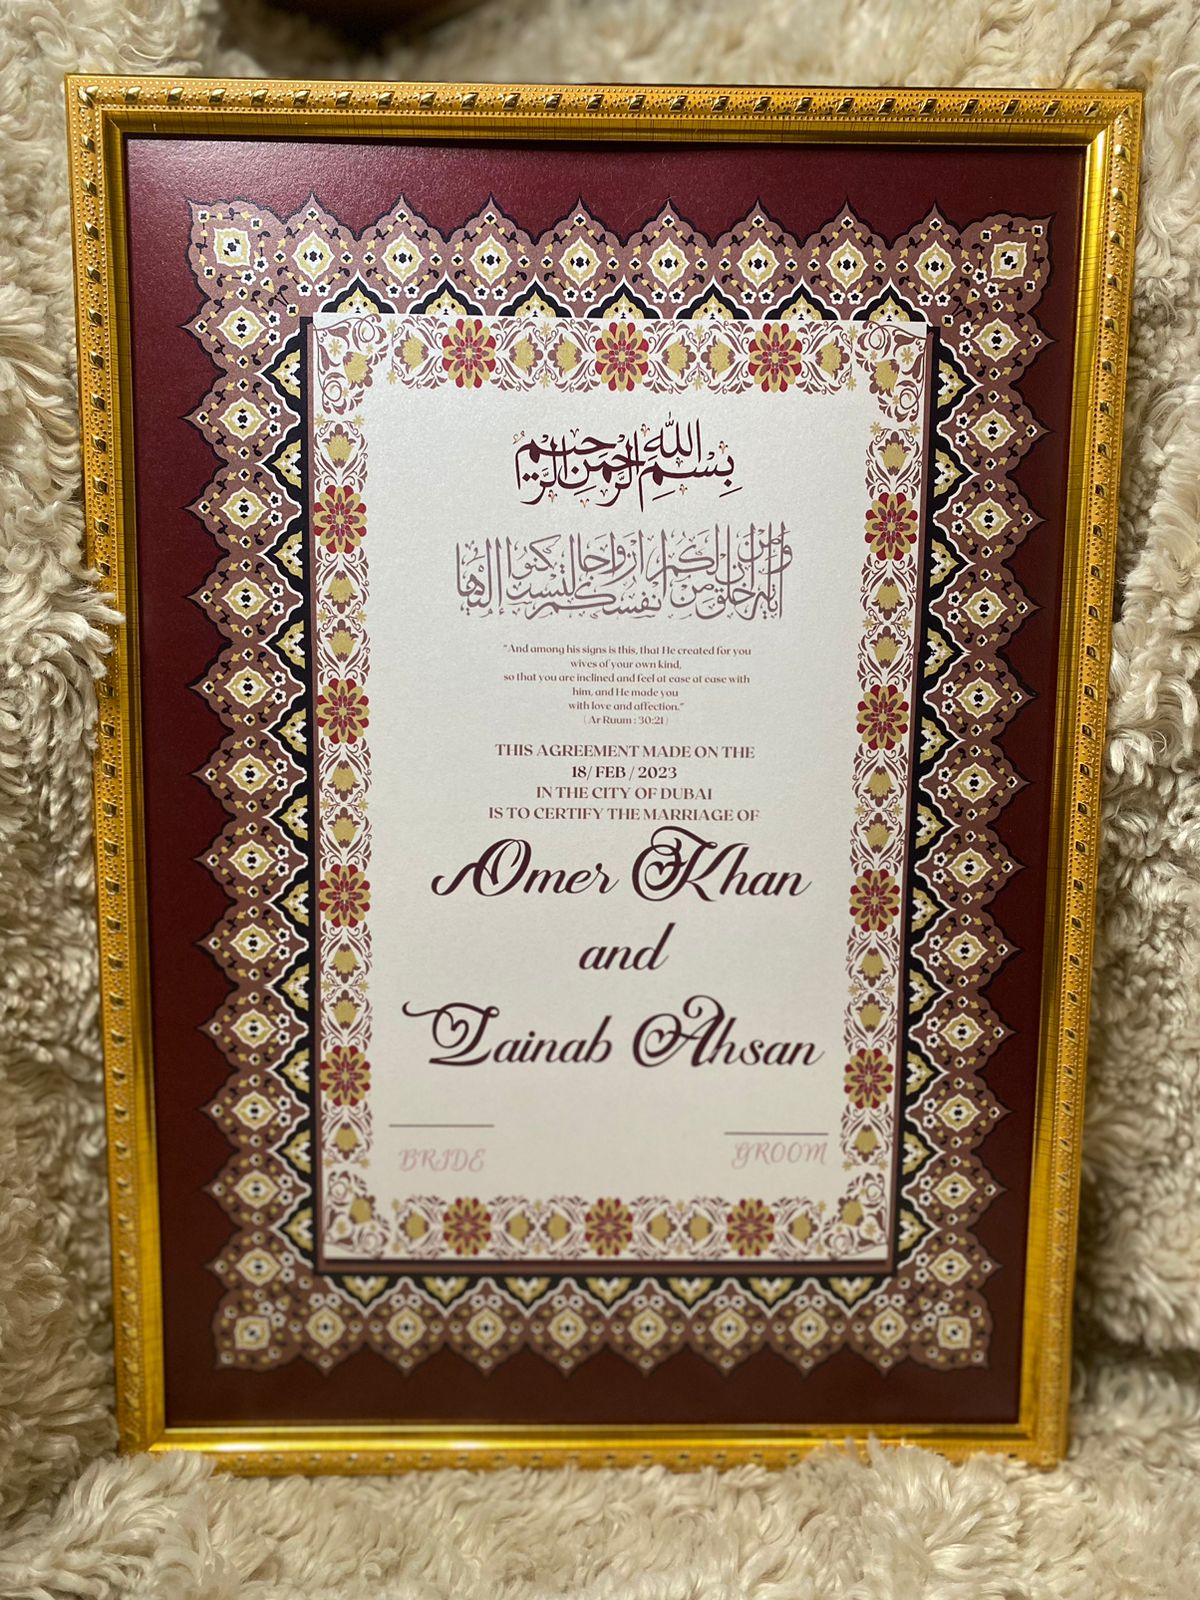 بِسْمِ اللهِ الرَّحْمٰنِ الرَّحِيمِ
وَمِنْ آيَاتِهِ أَنْ خَلَقَ لَكُمْ مِنْ أَنْفُسِكُمْ أَزْوَاجًا لِتَسْكُنُوا إِلَيْهَا
"And among his signs is this, that He created for you
wives of your own kind,
so that you are inclined and feel at ease at ease with
him, and He made you
with love and affection."
( Ar Ruum : 30:21 )
THIS AGREEMENT MADE ON THE
18/ FEB / 2023
IN THE CITY OF DUBAI
IS TO CERTIFY THE MARRIAGE OF
Omer Khan
and
Zainab Ahsan
BRIDE GROOM